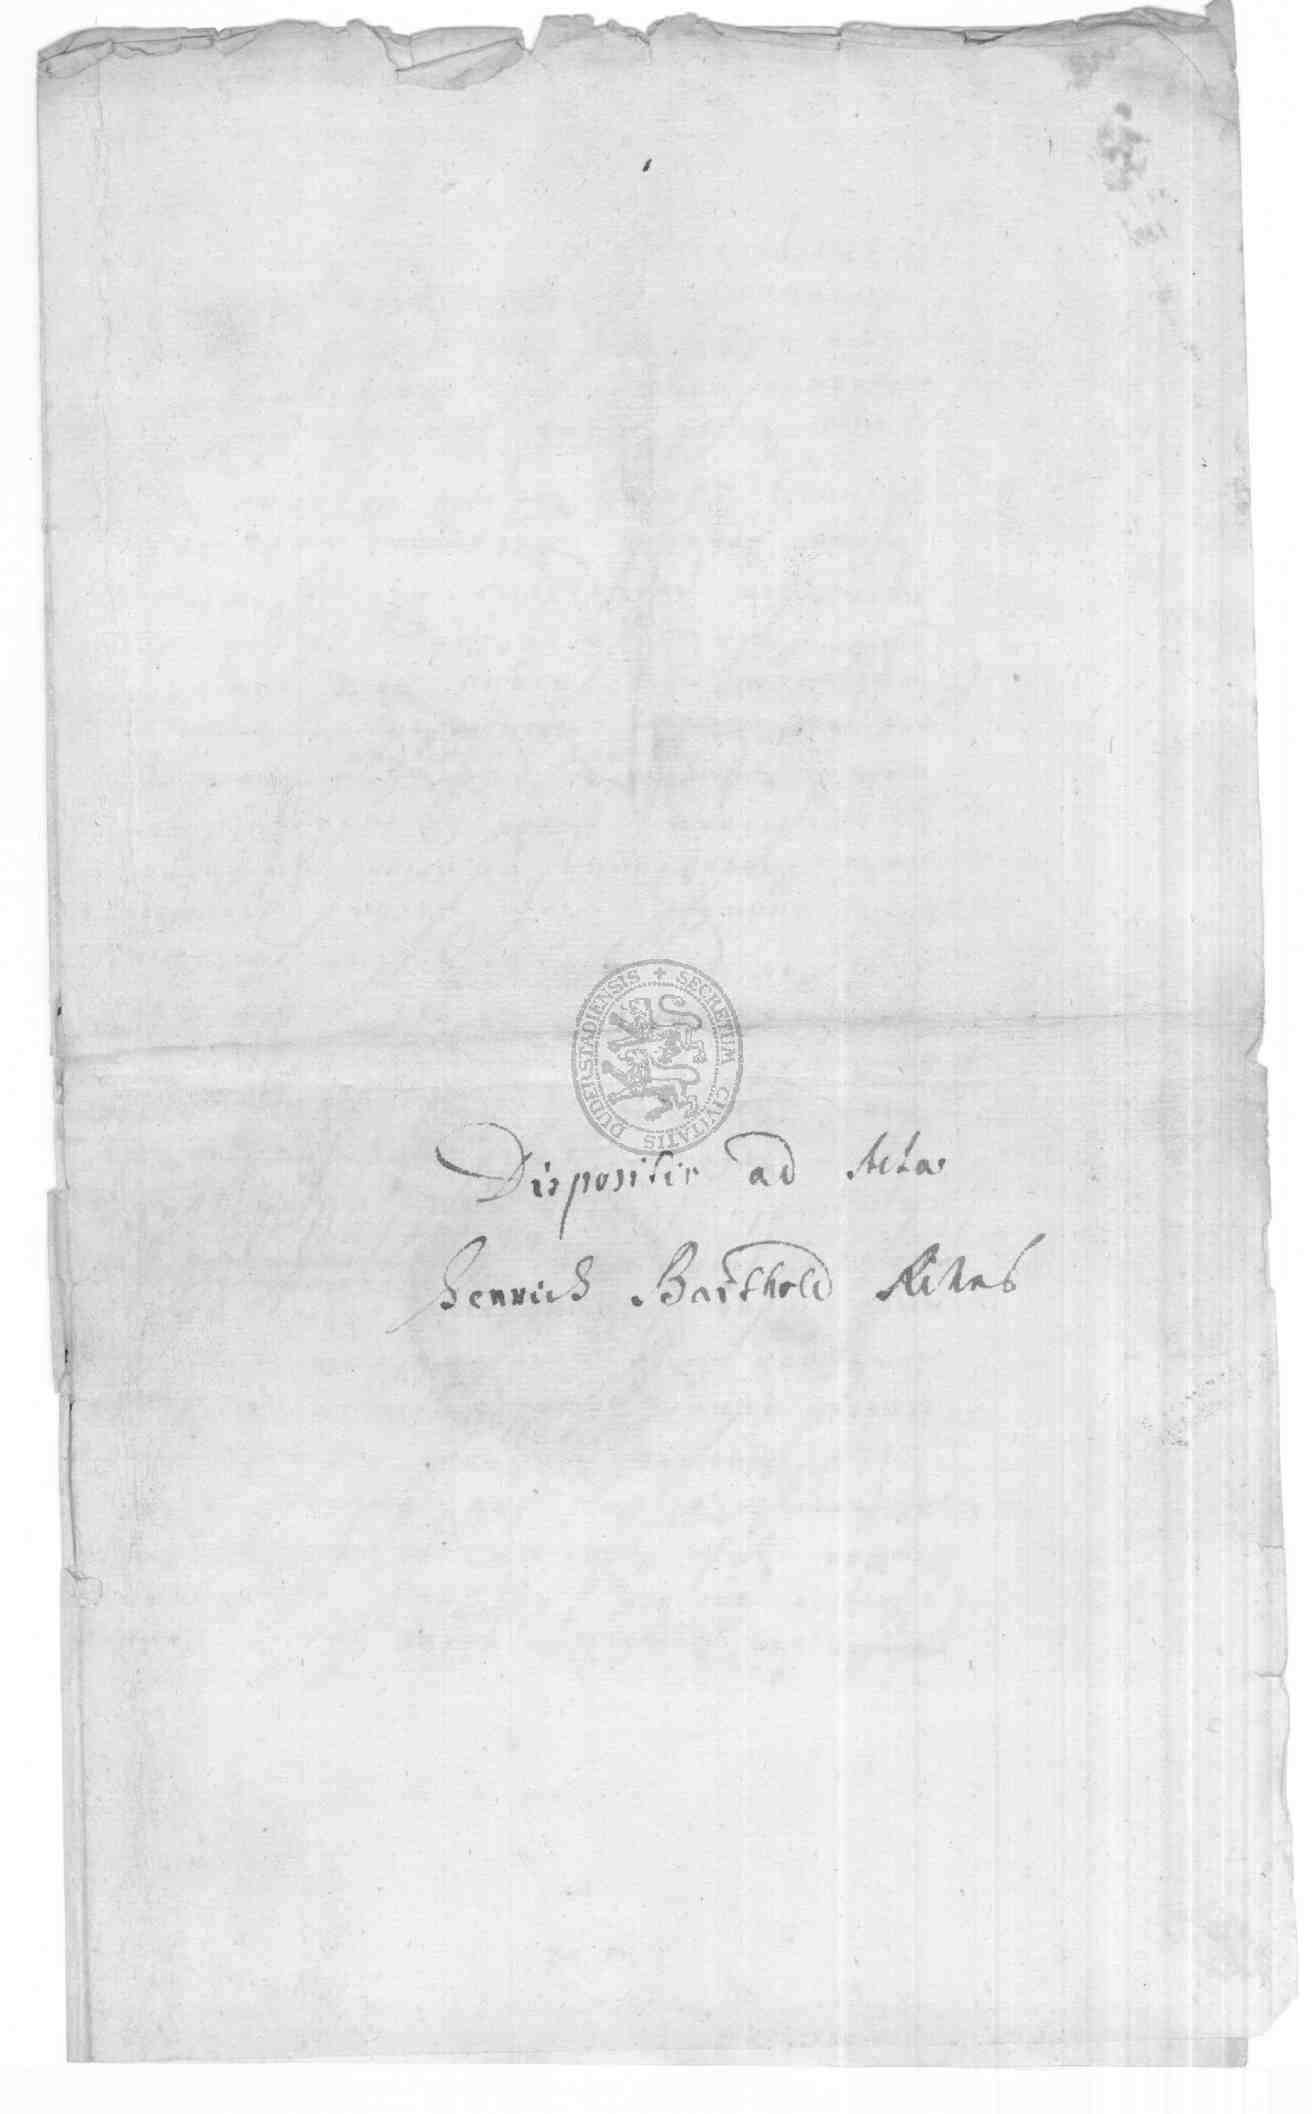 SECRETUM CIVITATIS DUDERSTADIENSIS
Dispositio ad Acta
Henrich Barthold